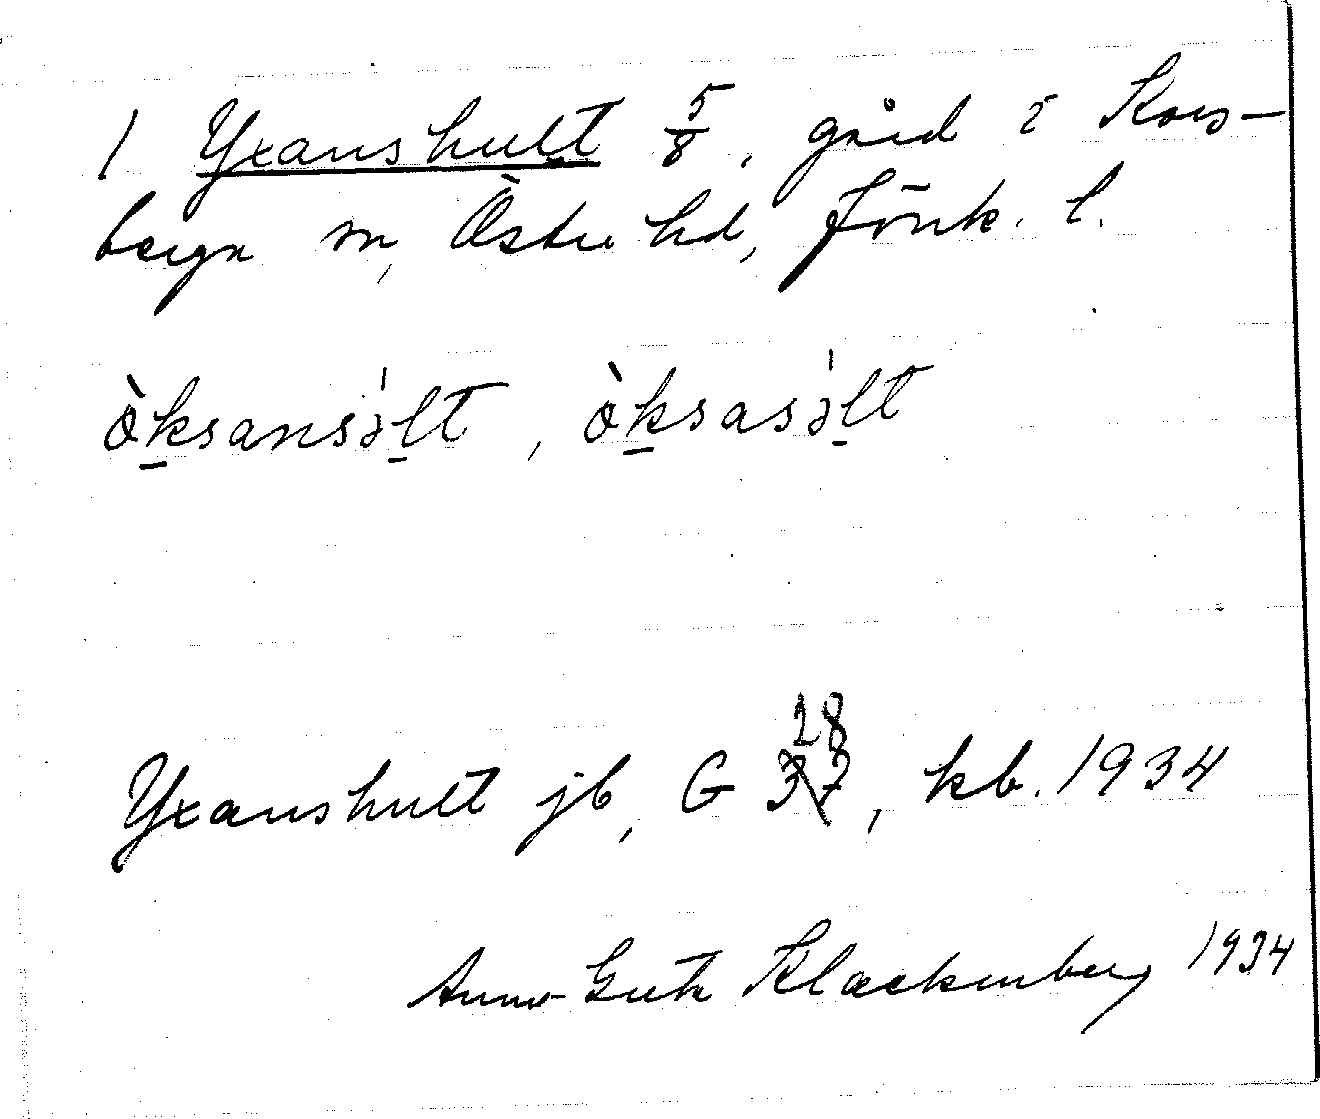 1 Yxanshult 5/8, gård i Kors-
berga sn, Östra hd, Jönk. l.
ò̀ksansə̍lt, ò̀ksasə̍lt
28
Yxanshult jb, G 37, kb. 1934
Anna-Greta Klackenberg 1934